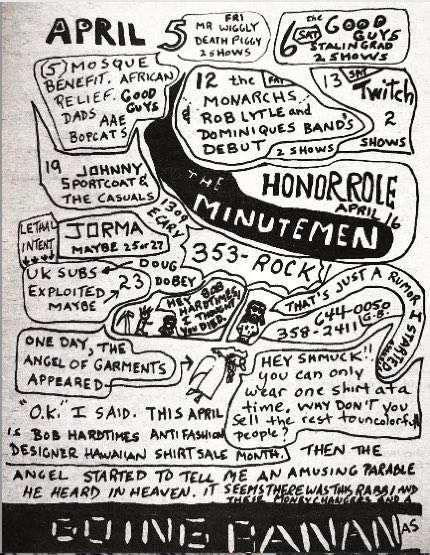 APRIL
5 FRI
MR WIGGLY
DEATH PIGGY
2 SHOWS
6 SAT
the GOOD
GUYS
STALINGRAD
2 SHOWS
(5) MOSQUE
BENEFIT. AFRICAN
RELIEF. GOOD
DADS GUYS
AAE
BOPCATS
12 the
MONARCHS
& ROB LYTLE and
DOMINIQUES BAND'S
DEBUT 2 SHOWS
13 SAT
Twitch
2
SHOWS
19 JOHNNY
SPORTCOAT &
THE CASUALS
THE
MINUTEMEN
HONOR ROLE
APRIL 16
1309
E CARY
353-ROCK
LETHAL
INTENT
JORMA
MAYBE 25 or 27
UK SUBS
EXPLOITED
MAYBE
23
DOUG
DOBEY
HEY BOB
HARDTIMES,
I THOUGHT
YOU DIED!
THAT'S JUST A RUMOR I STARTED
644-0050
358-2411 G.B.
ONE DAY, THE
ANGEL OF GARMENTS
APPEARED
HEY SHMUCK!!
you can only
wear one shirt at a
time. WHY DON'T you
Sell the rest to uncolorful
people?
"O.K." I SAID. THIS APRIL
IS BOB HARDTIMES ANTI FASHION
DESIGNER HAWAIIAN SHIRT SALE MONTH. THEN THE
ANGEL STARTED TO TELL ME AN AMUSING PARABLE
HE HEARD IN HEAVEN. IT SEEMS THERE WAS THIS RABBI AND
THESE MONEY CHANGERS AND A
GOING BANAN AS